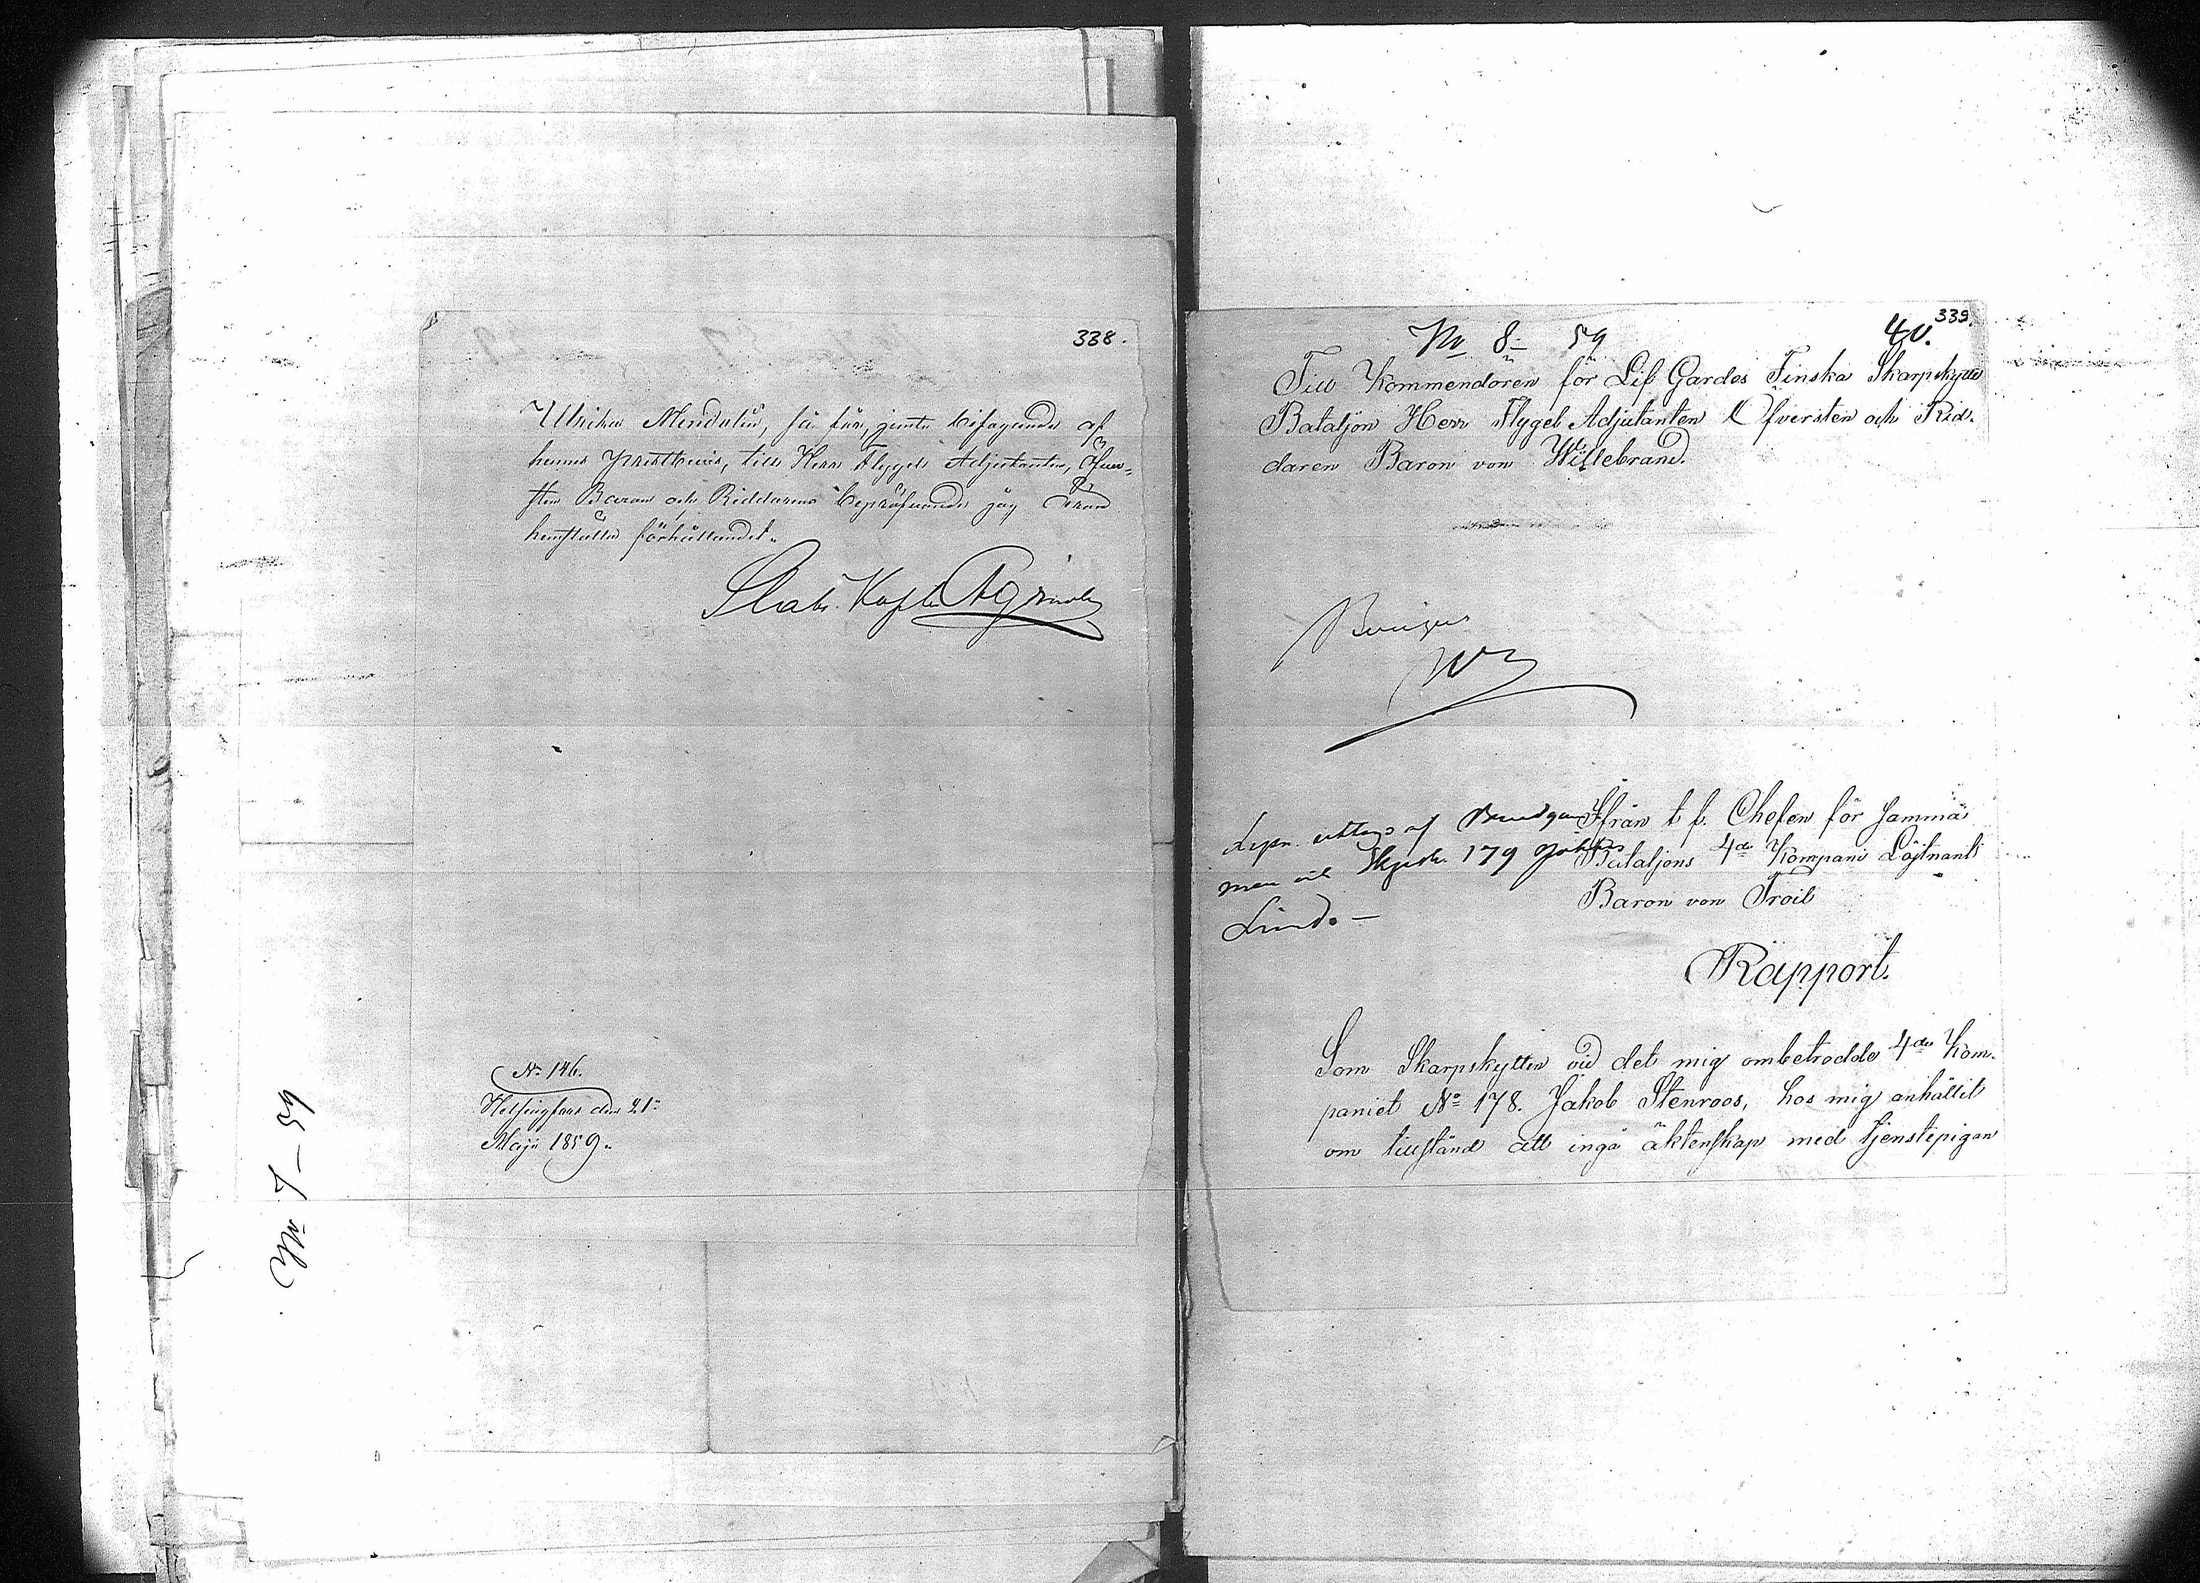 338.
Ulrika Mendalin, så får, jemte bifogande af
hennes Prestbevis, till Herr Flygel Adjutanten, Öfver-
sten Baron och Riddarens bepröfvande jag äran
hemställa förhållandet.
Stabs Kapten
No 146.
Helsingfors den 21
Maji 1859.
No 7 – 59
339.
No 8 – 59
40.
Till Kommendören för Lif Gardes Finska Skarpskytte
Bataljon Herr Flygel Adjutanten Öfversten och Rid-
daren Baron von Willebrand.
Bevijas
W
af
179
Lind. –
Ifrån t. f. Chefen för samma
Bataljons 4de Kompani Löjtnant
Baron von Troil
Rapport.
Som Skarpskytten vid det mig ombetrodde 4de Kom-
paniet No 178. Jakob Stenroos, hos mig anhållit
om tillstånd att ingå äktenskap med tjenstepigan